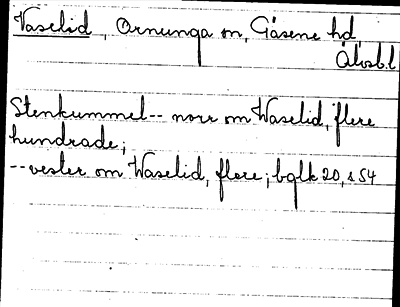 Vaselid, Ornunga sn, Gäsene hd
Älvsb.l
Stenkummel -- norr om Waselid, flere
hundrade;
-- vester om Waselid, flere; bglk 20, s 54